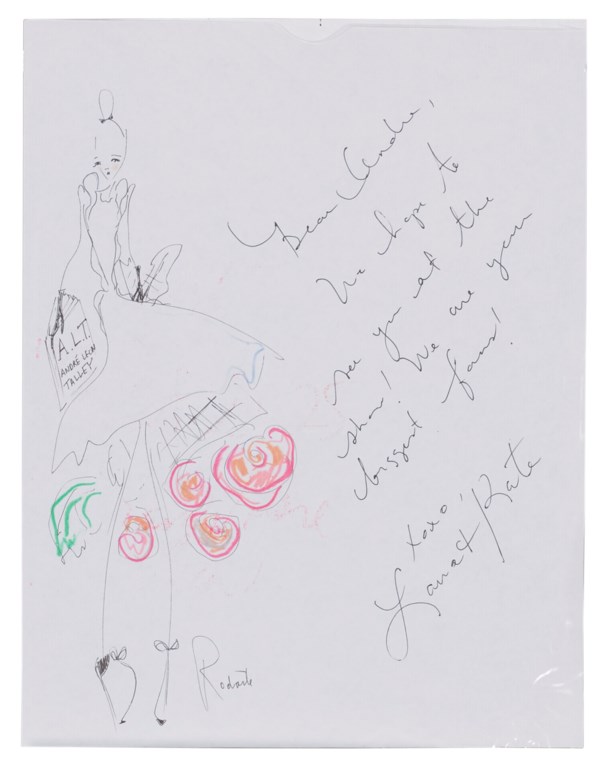 Dear Andre,
We hope to
see you at the
show! We are your
biggest fans!
xoxo,
Laura & Kate
A.L.T.
ANDRÉ LEON
TALLEY
Rodarte